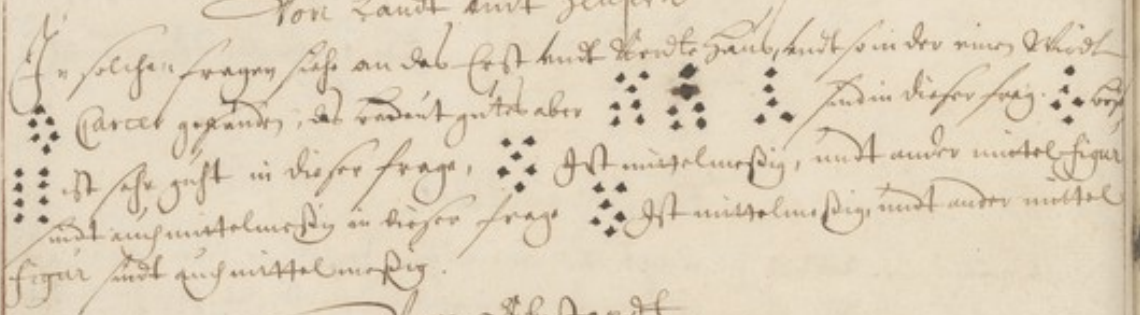 Von Landt undt
In solchen fragen siehe an das Erst undt Vierdte Hauß, undt so in der einen Wirdt
Carcer gefunden, das bedeut gutes aber sind in dieser frag. böß
ist sehr guht in dieser frage, Ist mittelmeßig, undt ander mittel figur
sindt auch mittelmeßig in dieser frage Ist mittelmeßig, undt ander mittel
figur sindt auch mittelmeßig.